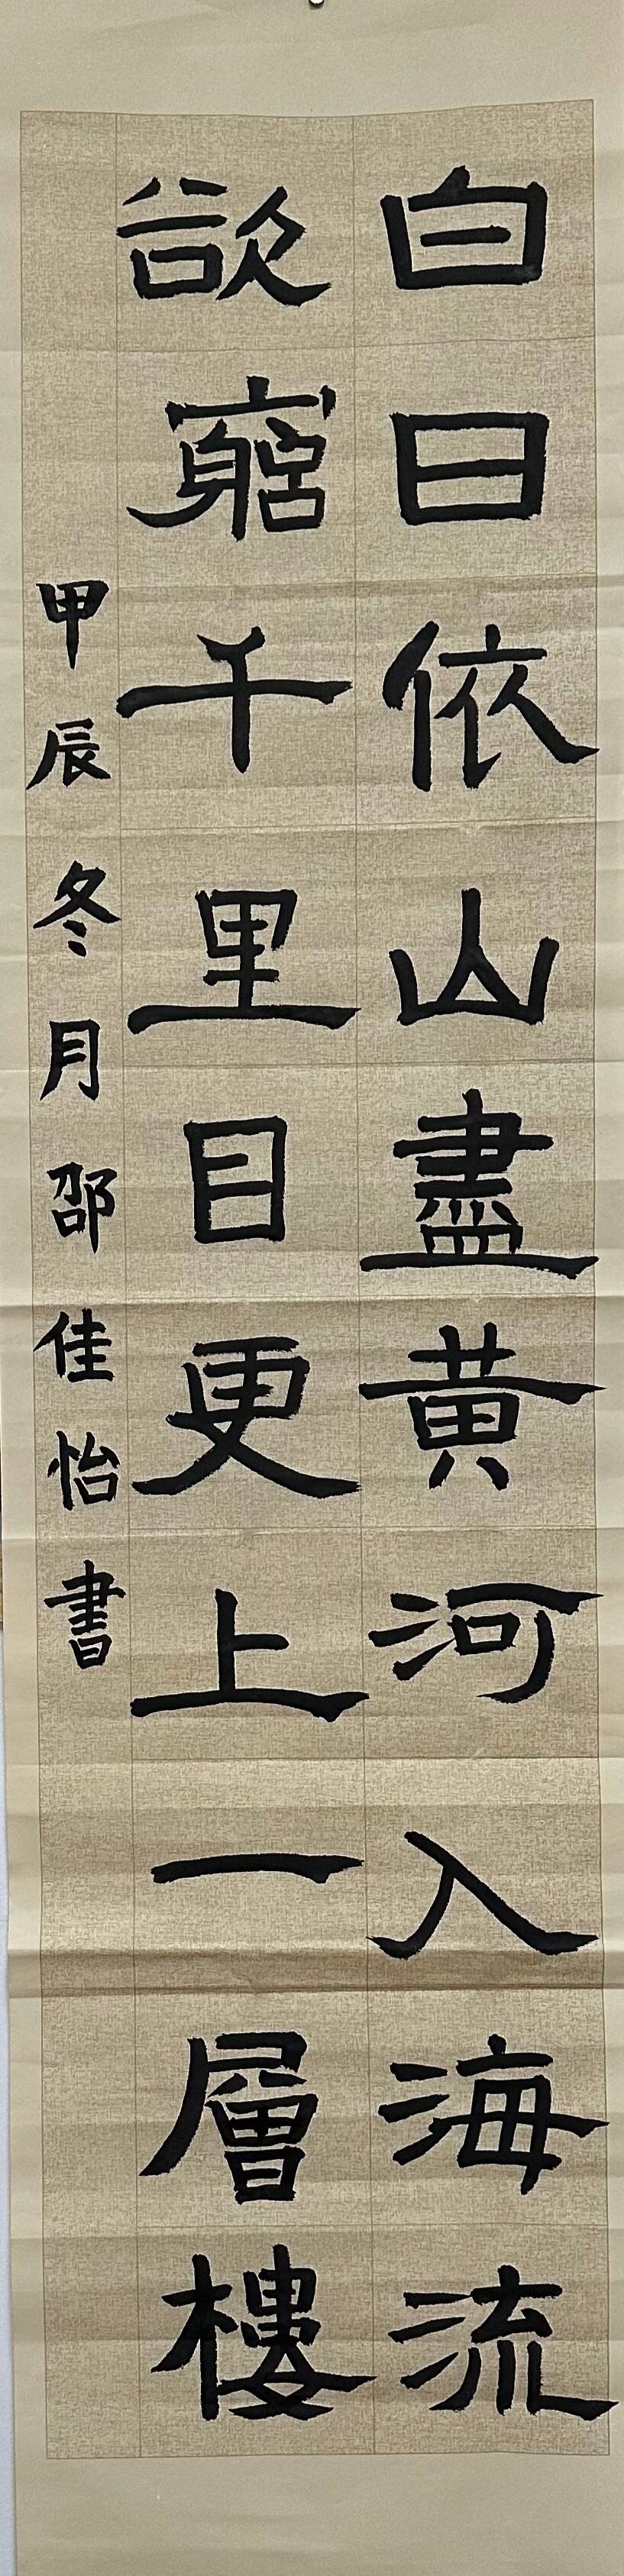 白日依山盡黄河入海流
欲窮千里目更上一層樓
甲辰冬月邵佳怡書